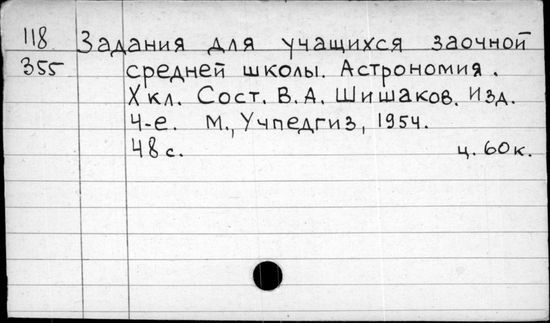 118 Задания для учащихся заочной
355 средней школы. Астрономия.
X кл. Сост. В.А. Шишаков. Изд.
4-е. М., Учпедгиз, 1954.
48 с. ц. 60 к.